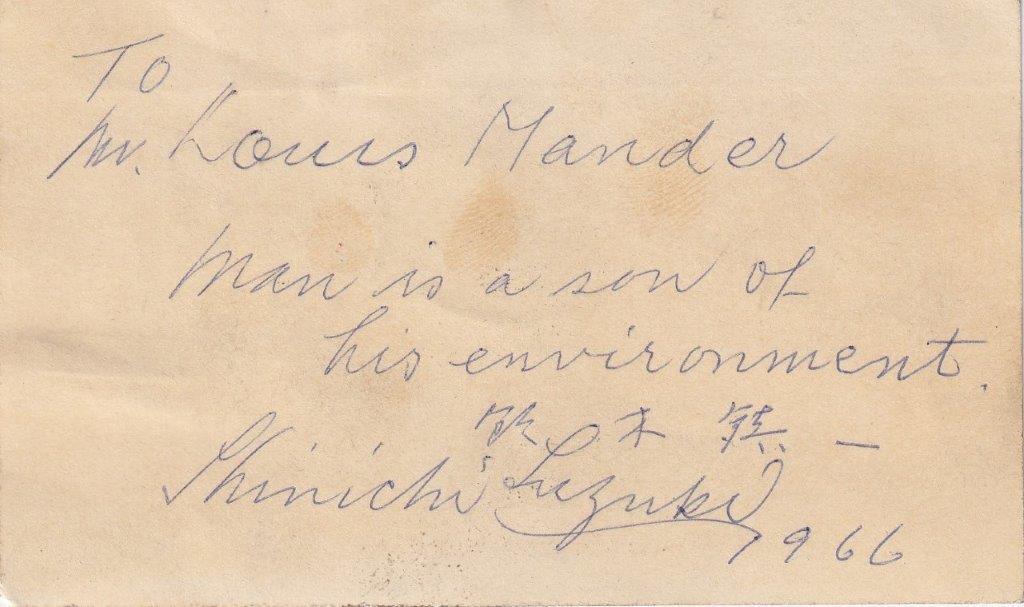 To
Mr. Louis Mander
Man is a son of
his environment.
鈴木鎮一
Shinichi Suzuki
1966